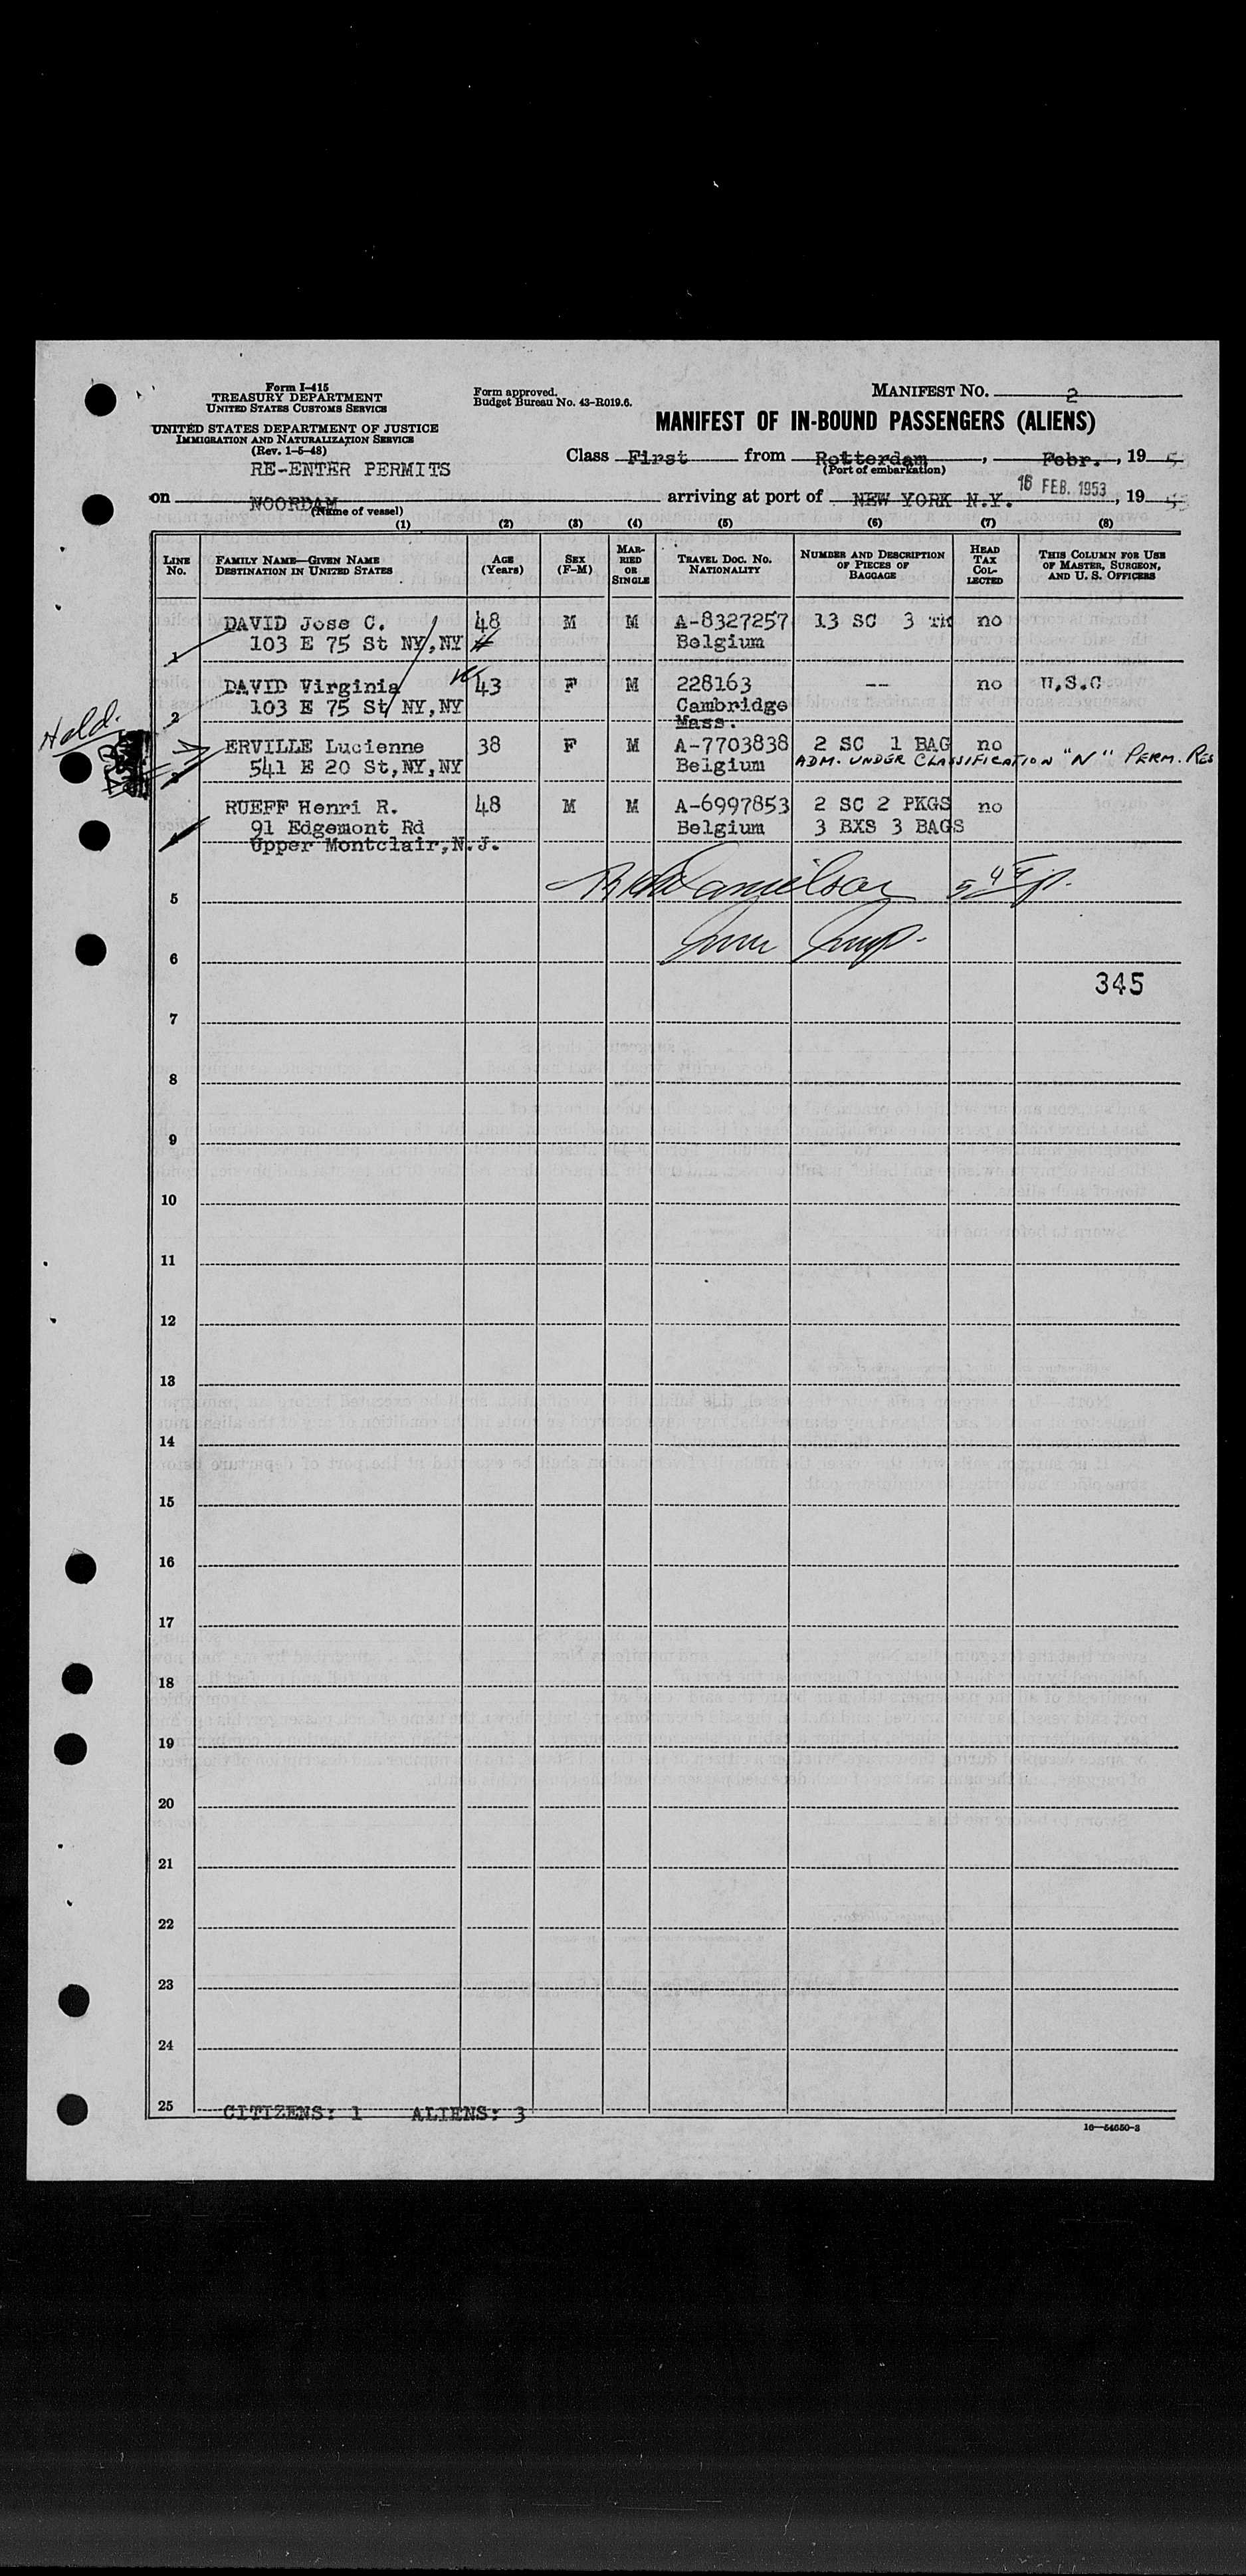 Form I-415
TREASURY DEPARTMENT
UNITED STATES CUSTOMS SERVICE
UNITED STATES DEPARTMENT OF JUSTICE
IMMIGRATION AND NATURALIZATION SERVICE
(Rev. 1-5-48)
RE-ENTER PERMITS
Form approved.
Budget Bureau No. 43-R019.6.
MANIFEST NO. 2
MANIFEST OF IN-BOUND PASSENGERS (ALIENS)
Class First from Rotterdam, Febr., 195
(Port of embarkation)
on NOORDAM arriving at port of NEW YORK N.Y. 16 FEB. 1953, 1953
(Name of vessel)
(1) (2) (3) (4) (5) (6) (7) (8)
LINE No. FAMILY NAME—GIVEN NAME DESTINATION IN UNITED STATES AGE (Years) SEX (F-M) MARRIED OR SINGLE TRAVEL DOC. NO. NATIONALITY NUMBER AND DESCRIPTION OF PIECES OF BAGGAGE HEAD TAX COLLECTED THIS COLUMN FOR USE OF MASTER, SURGEON, AND U. S. OFFICERS
DAVID Jose C. 48 M M A-8327257 13 SC 3 TK no
1 103 E 75 St NY,NY Belgium
DAVID Virginia 43 F M 228163 -- no U.S.C
2 103 E 75 St NY,NY Cambridge
Mass.
Held.
ERVILLE Lucienne 38 F M A-7703838 2 SC 1 BAG no
3 541 E 20 St,NY,NY Belgium ADM. UNDER CLASSIFICATION "N" PERM. RES
RUEFF Henri R. 48 M M A-6997853 2 SC 2 PKGS no
91 Edgemont Rd Belgium 3 BXS 3 BAGS
Upper Montclair,N.J.
5
6
345
7
8
9
10
11
12
13
14
15
16
17
18
19
20
21
22
23
24
25 CITIZENS: 1 ALIENS: 3
16—54650-3